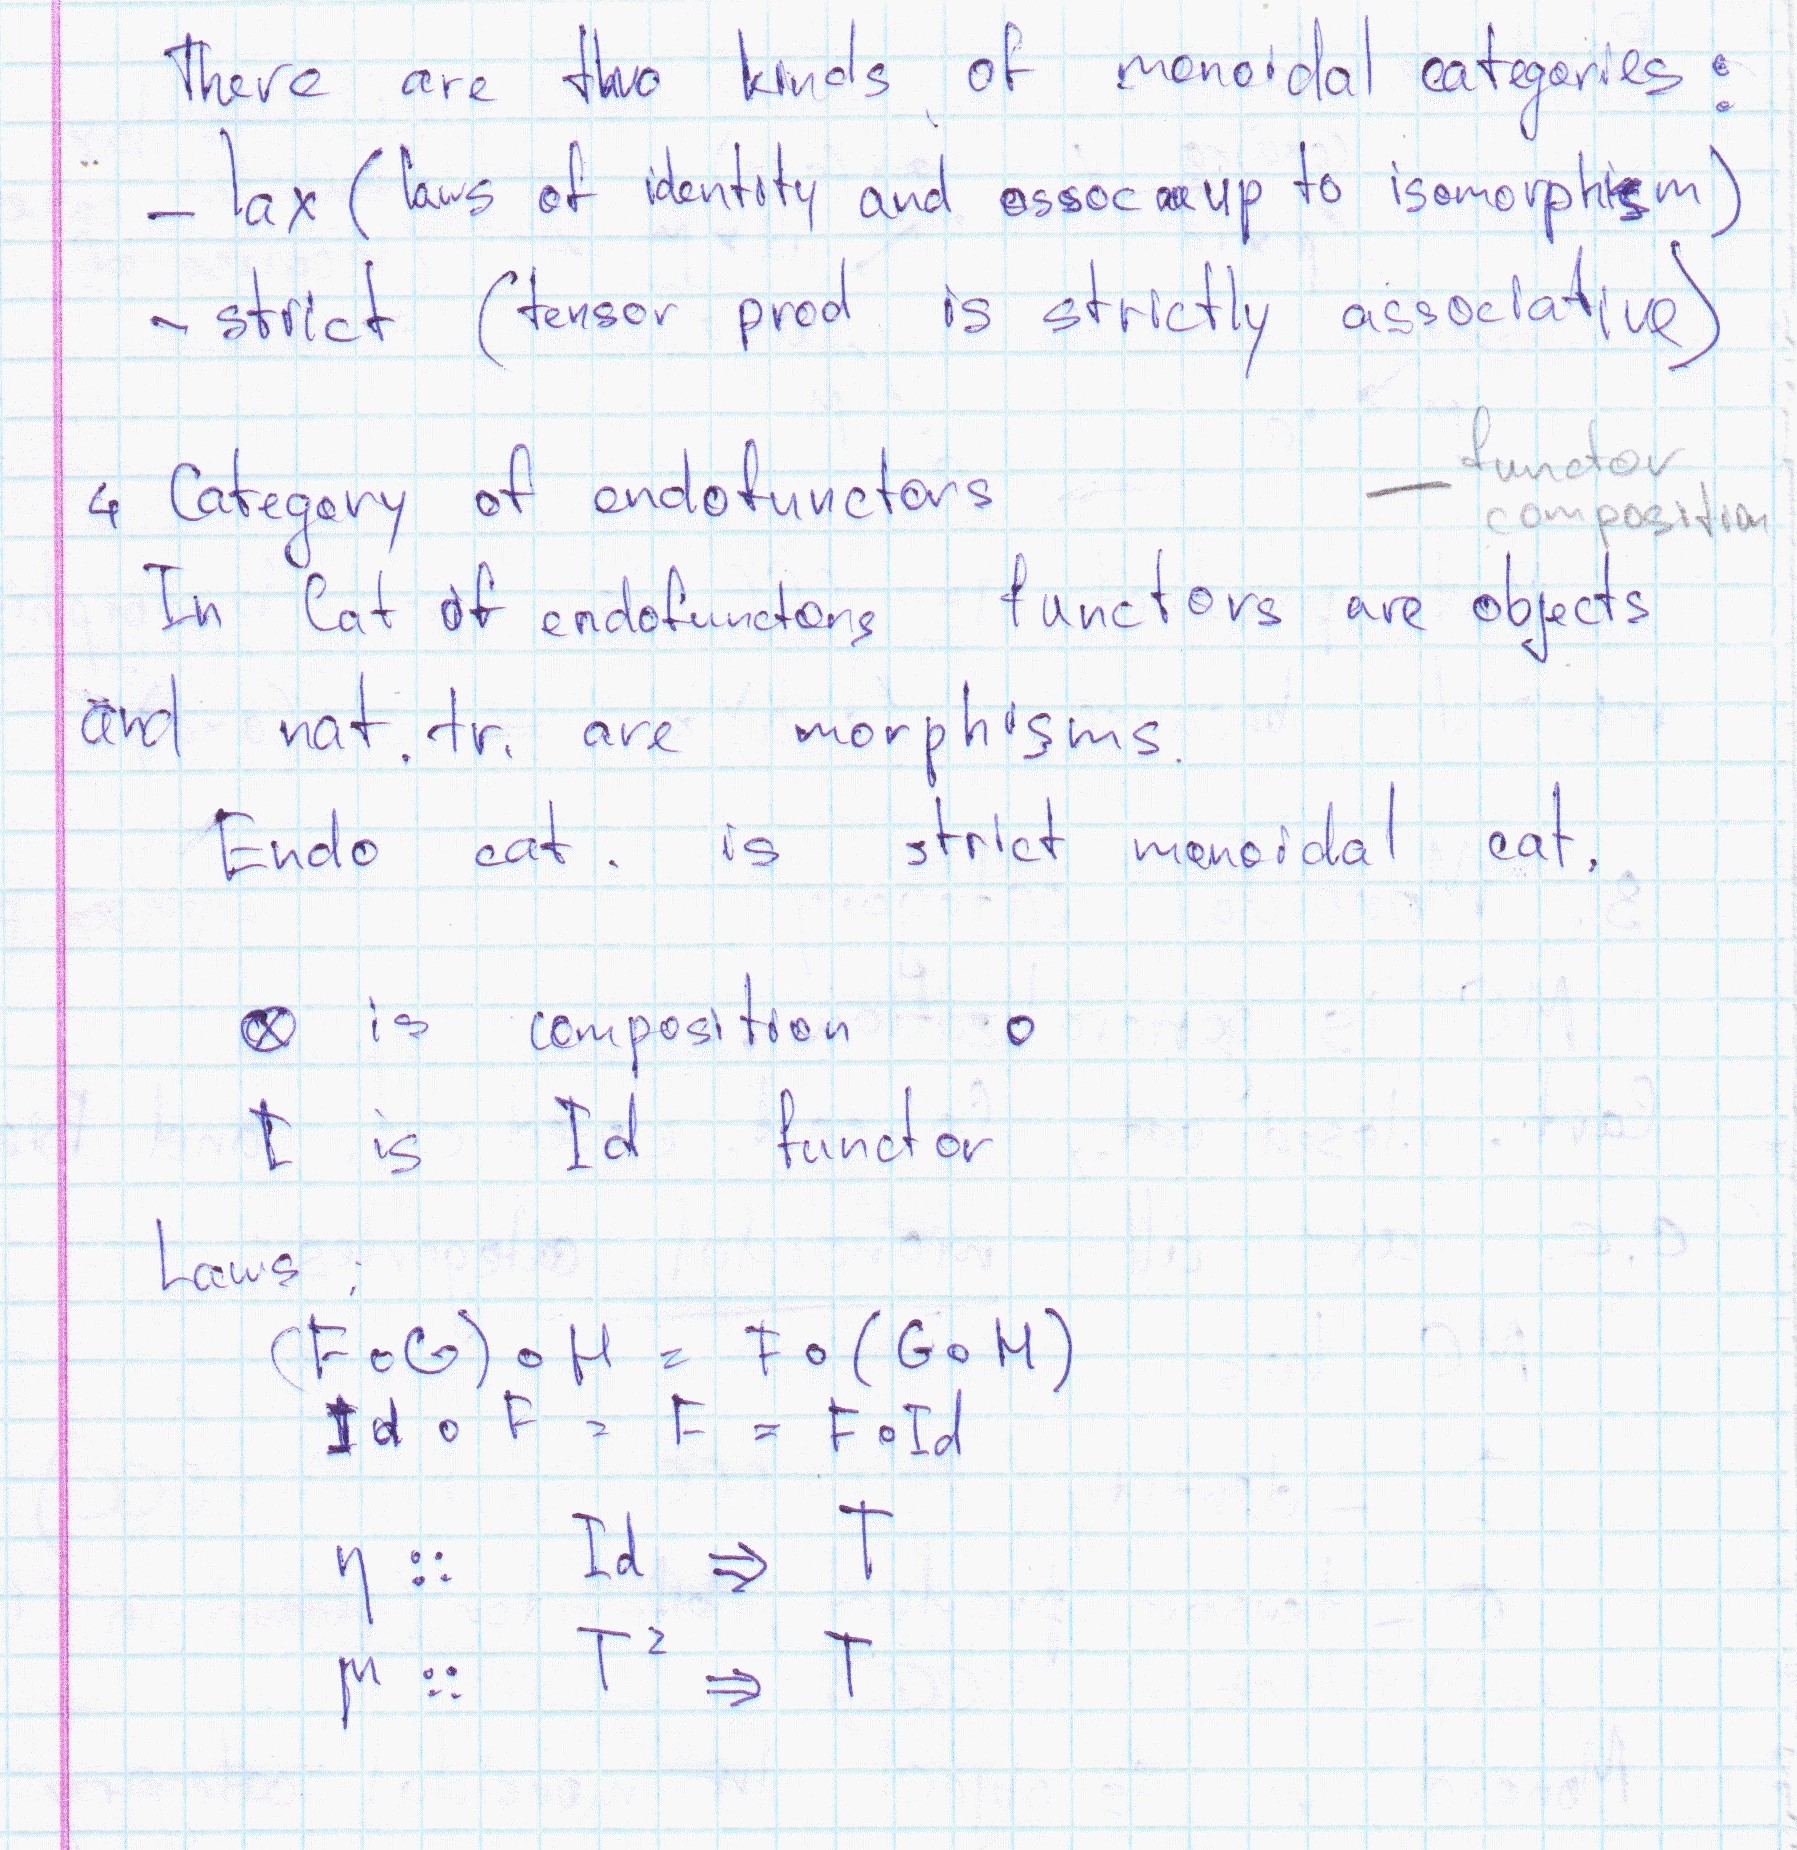 There are two kinds of monoidal categories:
- lax (laws of identity and assoc up to isomorphism)
- strict (tensor prod is strictly associative)
4 Category of endofunctors
— functor
composition
In Cat of endofunctors functors are objects
and nat. tr. are morphisms.
Endo cat. is strict monoidal cat.
⊗ is composition ∘
I is Id functor
Laws:
(F∘G)∘H = F∘(G∘H)
Id ∘ F = F = F∘Id
η :: Id ⇒ T
μ :: T² ⇒ T